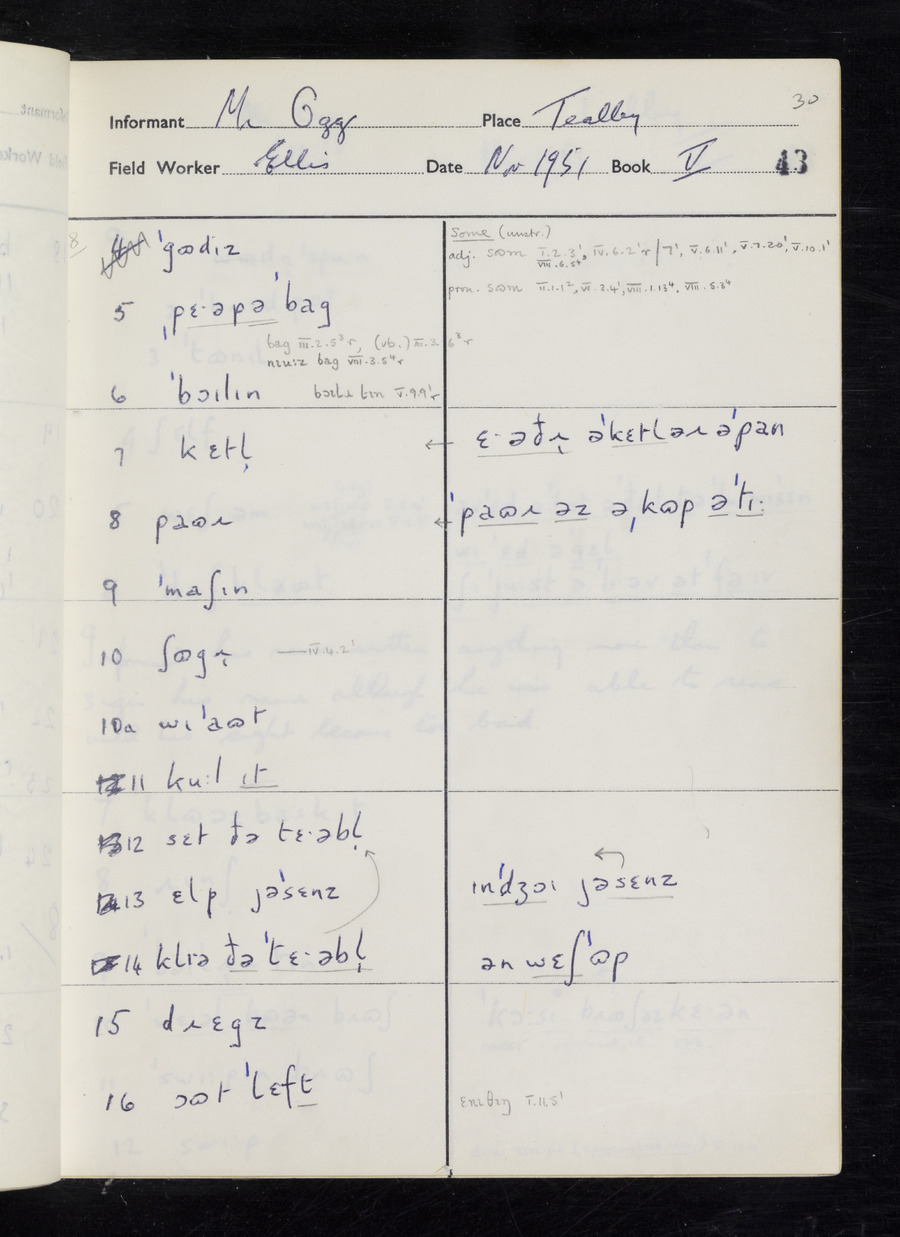 30
Informant Mr Ogg Place Tealby
Field Worker Ellis Date Nov 1951 Book V 43
8 ˈgɷdɪz
5 ˌpɛ·əpəˈbag
bag III.2.5³r, (vb.) III.3.6³r
bag VIII.3.5⁴r
6 ˈbɔɪlɪn V.9.9ˈr
7 kɛtl̩
8 paɷɹ
9 ˈmaʃɪn
10 ʃɷgɹ̩ — IV.4.2ˈ
10a wɪˈaɷt
11 ku:l ɪt
12 sɛt ðə tɛ·əbl̩
13 ɛlp jəˈsɛnz
14 klɪə ðəˈtɛ·əbl̩
15 dɹɛgz
16 ɔɷt ˈlɛft
Some (unstr.)
adj. sɷm I.2.3ˈ, IV.6.2ˈr/7ˈ, V.6.11ˈ, V.7.20ˈ, V.10.1ˈ
VIII.6.5⁴
pron. sɷm II.1.1², VI.3.4ˈ, VIII.1.13⁴, VIII.5.3⁴
← ɛ·əðɹ̩ əˈkɛtləɹəˈpan
← ˈpaɷɹ əz ə ˌkɷp əˈtɪ:
ɪnˈdʒɔɪ jəsɛnz
ən wɛʃˈɷp
ɛnɪθɪŋ V.11.5ˈ